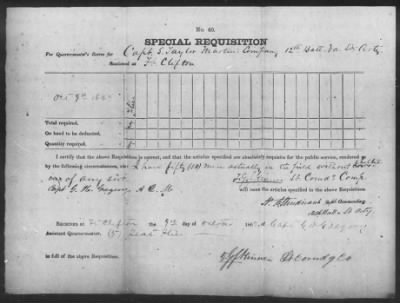 No. 40.
SPECIAL REQUISITION
For Quartermaster's Stores for Capt. S. Taylor Martin Company 12th Batt. Va Lt Arty
Stationed at Ft Clifton
Oct 9th
Total required,
On hand to be deducted,
Quantity required,
I certify that the above Requisition is correct, and that the articles specified are absolutely requisite for the public service, rendered so
by the following circumstances, I have fifty men actually in the field without
of any sort.
Lt Comdg Comp
Capt G. W. Gregory A Q M will issue the articles specified in the above Requisition.
Commanding
Received at Ft Clifton the 9th day of October 186 of Capt G. W. Gregory
Assistant Quartermaster,
in full of the above Requisition.
Lt Comdg Co